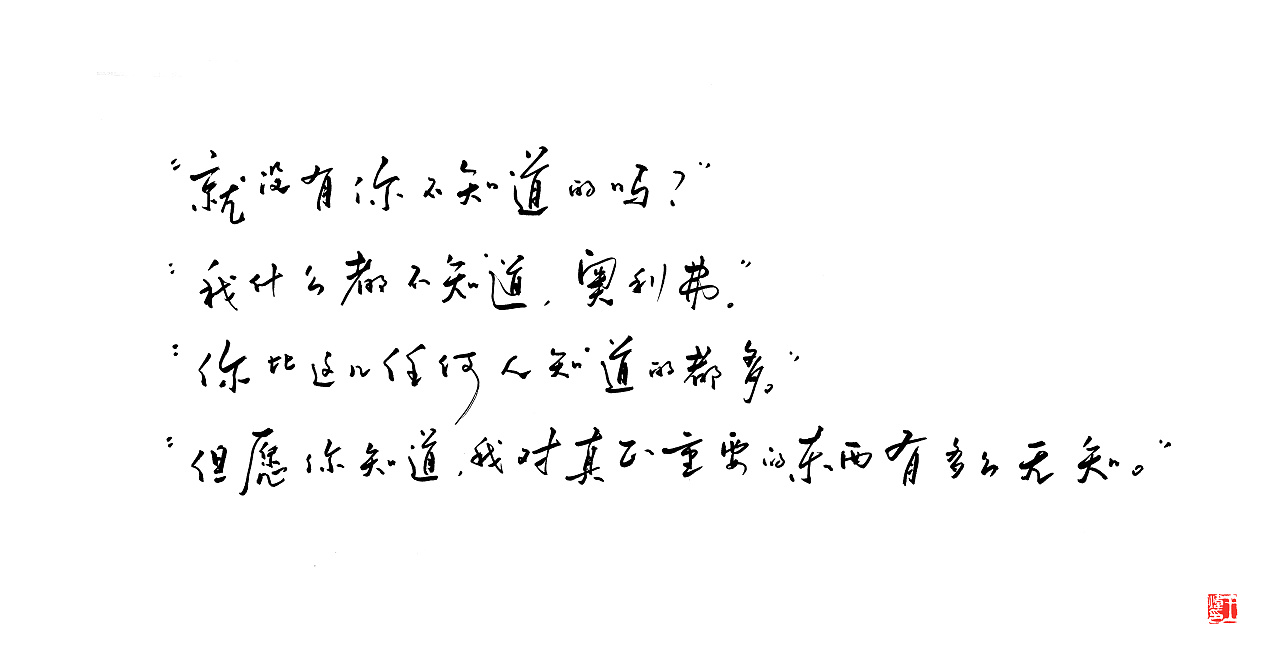 “就没有你不知道的吗？”
“我什么都不知道，奥利弗。”
“你比这儿任何人知道的都多。”
“但愿你知道，我对真正重要的东西有多么无知。”